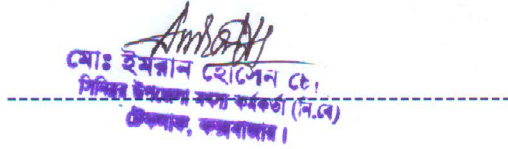 মোঃ ইমরান হোসেন চৌ।
সিনিয়র উপজেলা মৎস্য কর্মকর্তা (নি.বে)
টেকনাফ, কক্সবাজার।